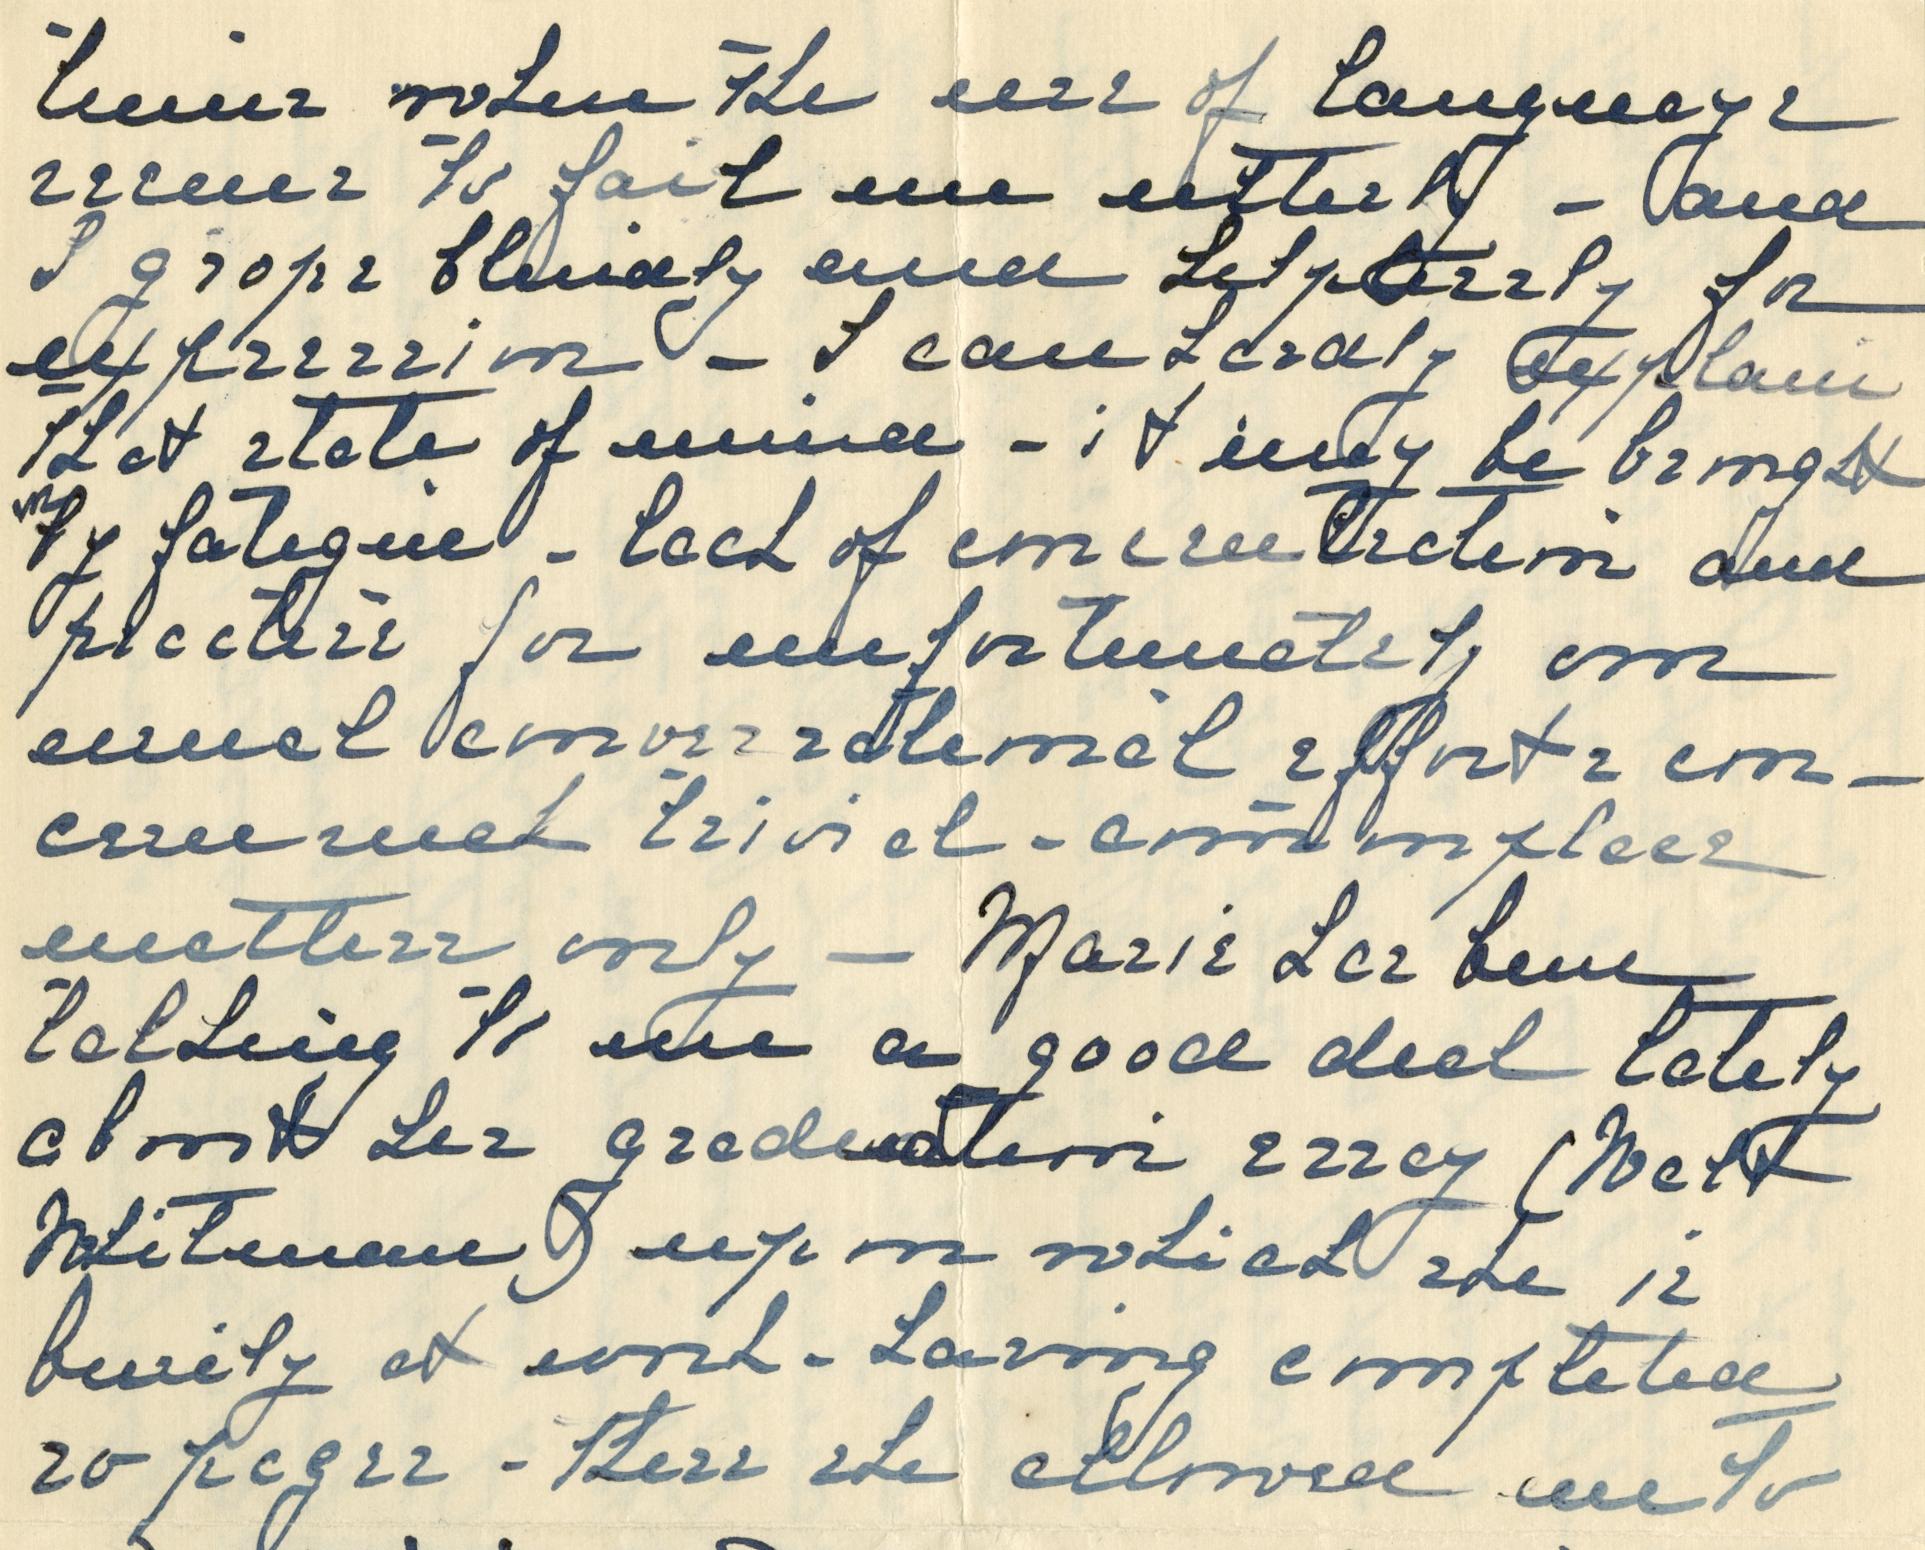 times when the use of language
seems to fail me utterly - and
I grope blindly and helplessly for
expression - I can hardly explain
that state of mind - it may be brought
on
by fatigue - lack of concentration and
practise for unfortunately our
usual conversational efforts con-
cern such trivial - commonplace
matters only - Marie has been
talking to me a good deal lately
about her graduation essay (Walt
Whitman) upon which she is
busily at work - having completed
20 pages - these she allowed me to